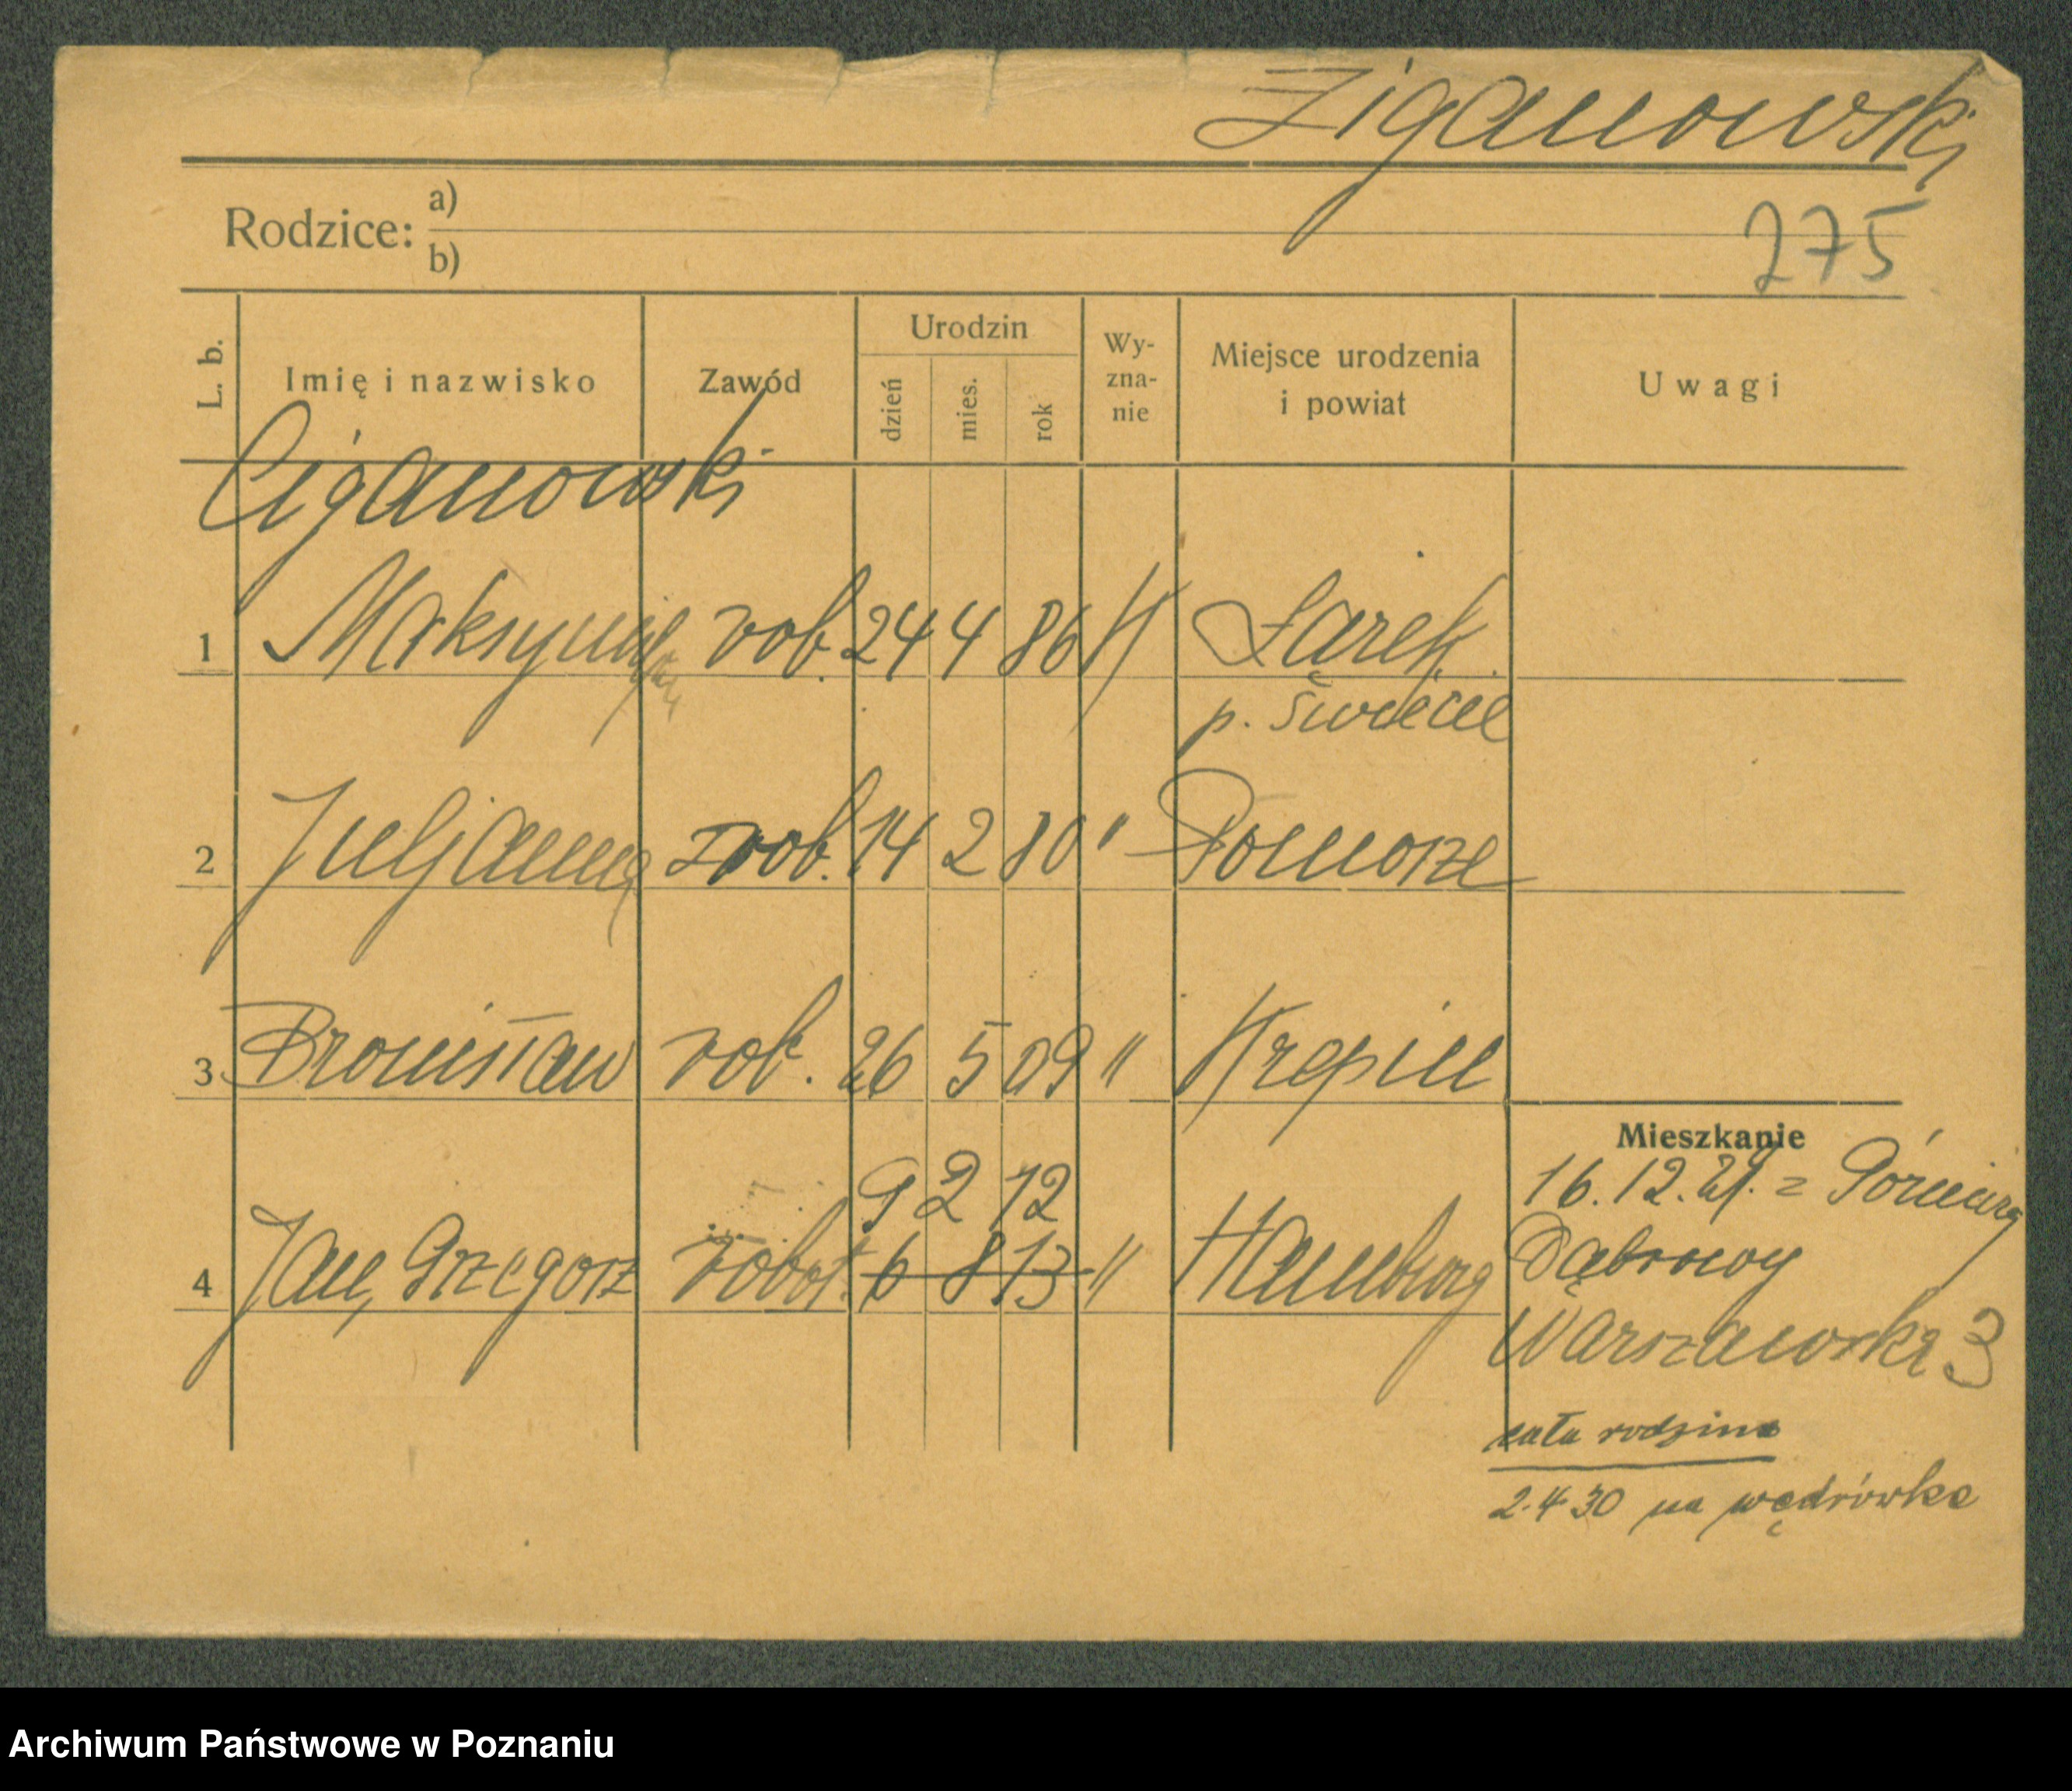 Ziganowski
Rodzice:
a)
b)
275
L. b.
Imię i nazwisko
Zawód
Urodzin
dzień
mies.
rok
Wy-
zna-
nie
Miejsce urodzenia
i powiat
Uwagi
Ciganowski
1 Maksymil rob. 24 4 86 K
p. Świecie
2 Juljanna rob. 14 2 80 " Pomorze
3 Bronisław rob. 26 5 09 " Krepin
9 2 12
4 Jan, Grzegorz robot. 6 8 13 " Hamburg
Mieszkanie
16.12.29. z
Dąbrowy
Warszawska 3
cała rodzina
2.4 30 na wędrówkę
Archiwum Państwowe w Poznaniu